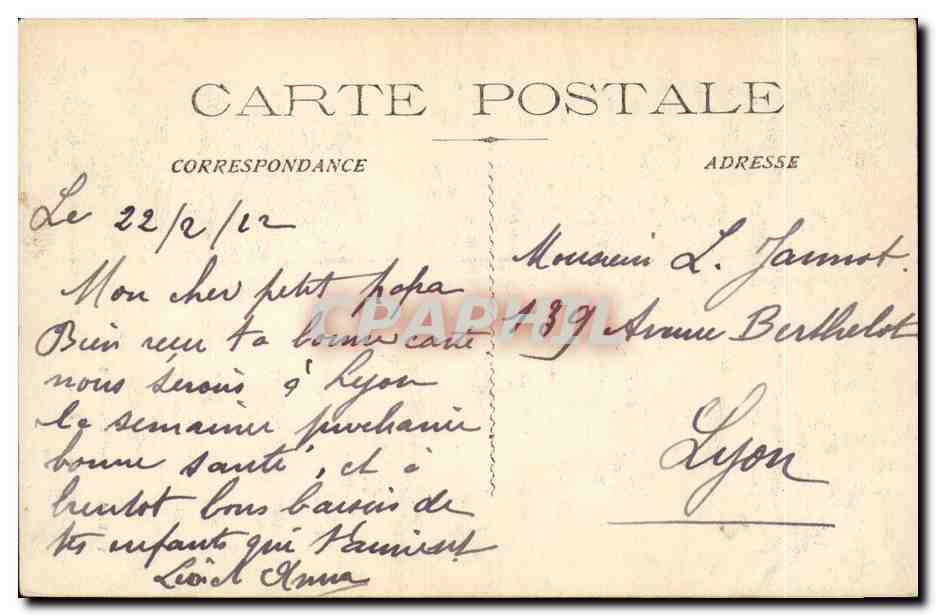 CARTE POSTALE
CORRESPONDANCE
Le 22/2/12
Mon cher petit papa
Bien reçu ta bonne carte
nous serons à Lyon
la semaine prochaine
bonne santé, et à
bientot bons baisers de
tes enfants qui t'aiment
Anna
ADRESSE
Monsieur L. Jannot.
139 Avenue Berthelot
Lyon
CPAPHIL